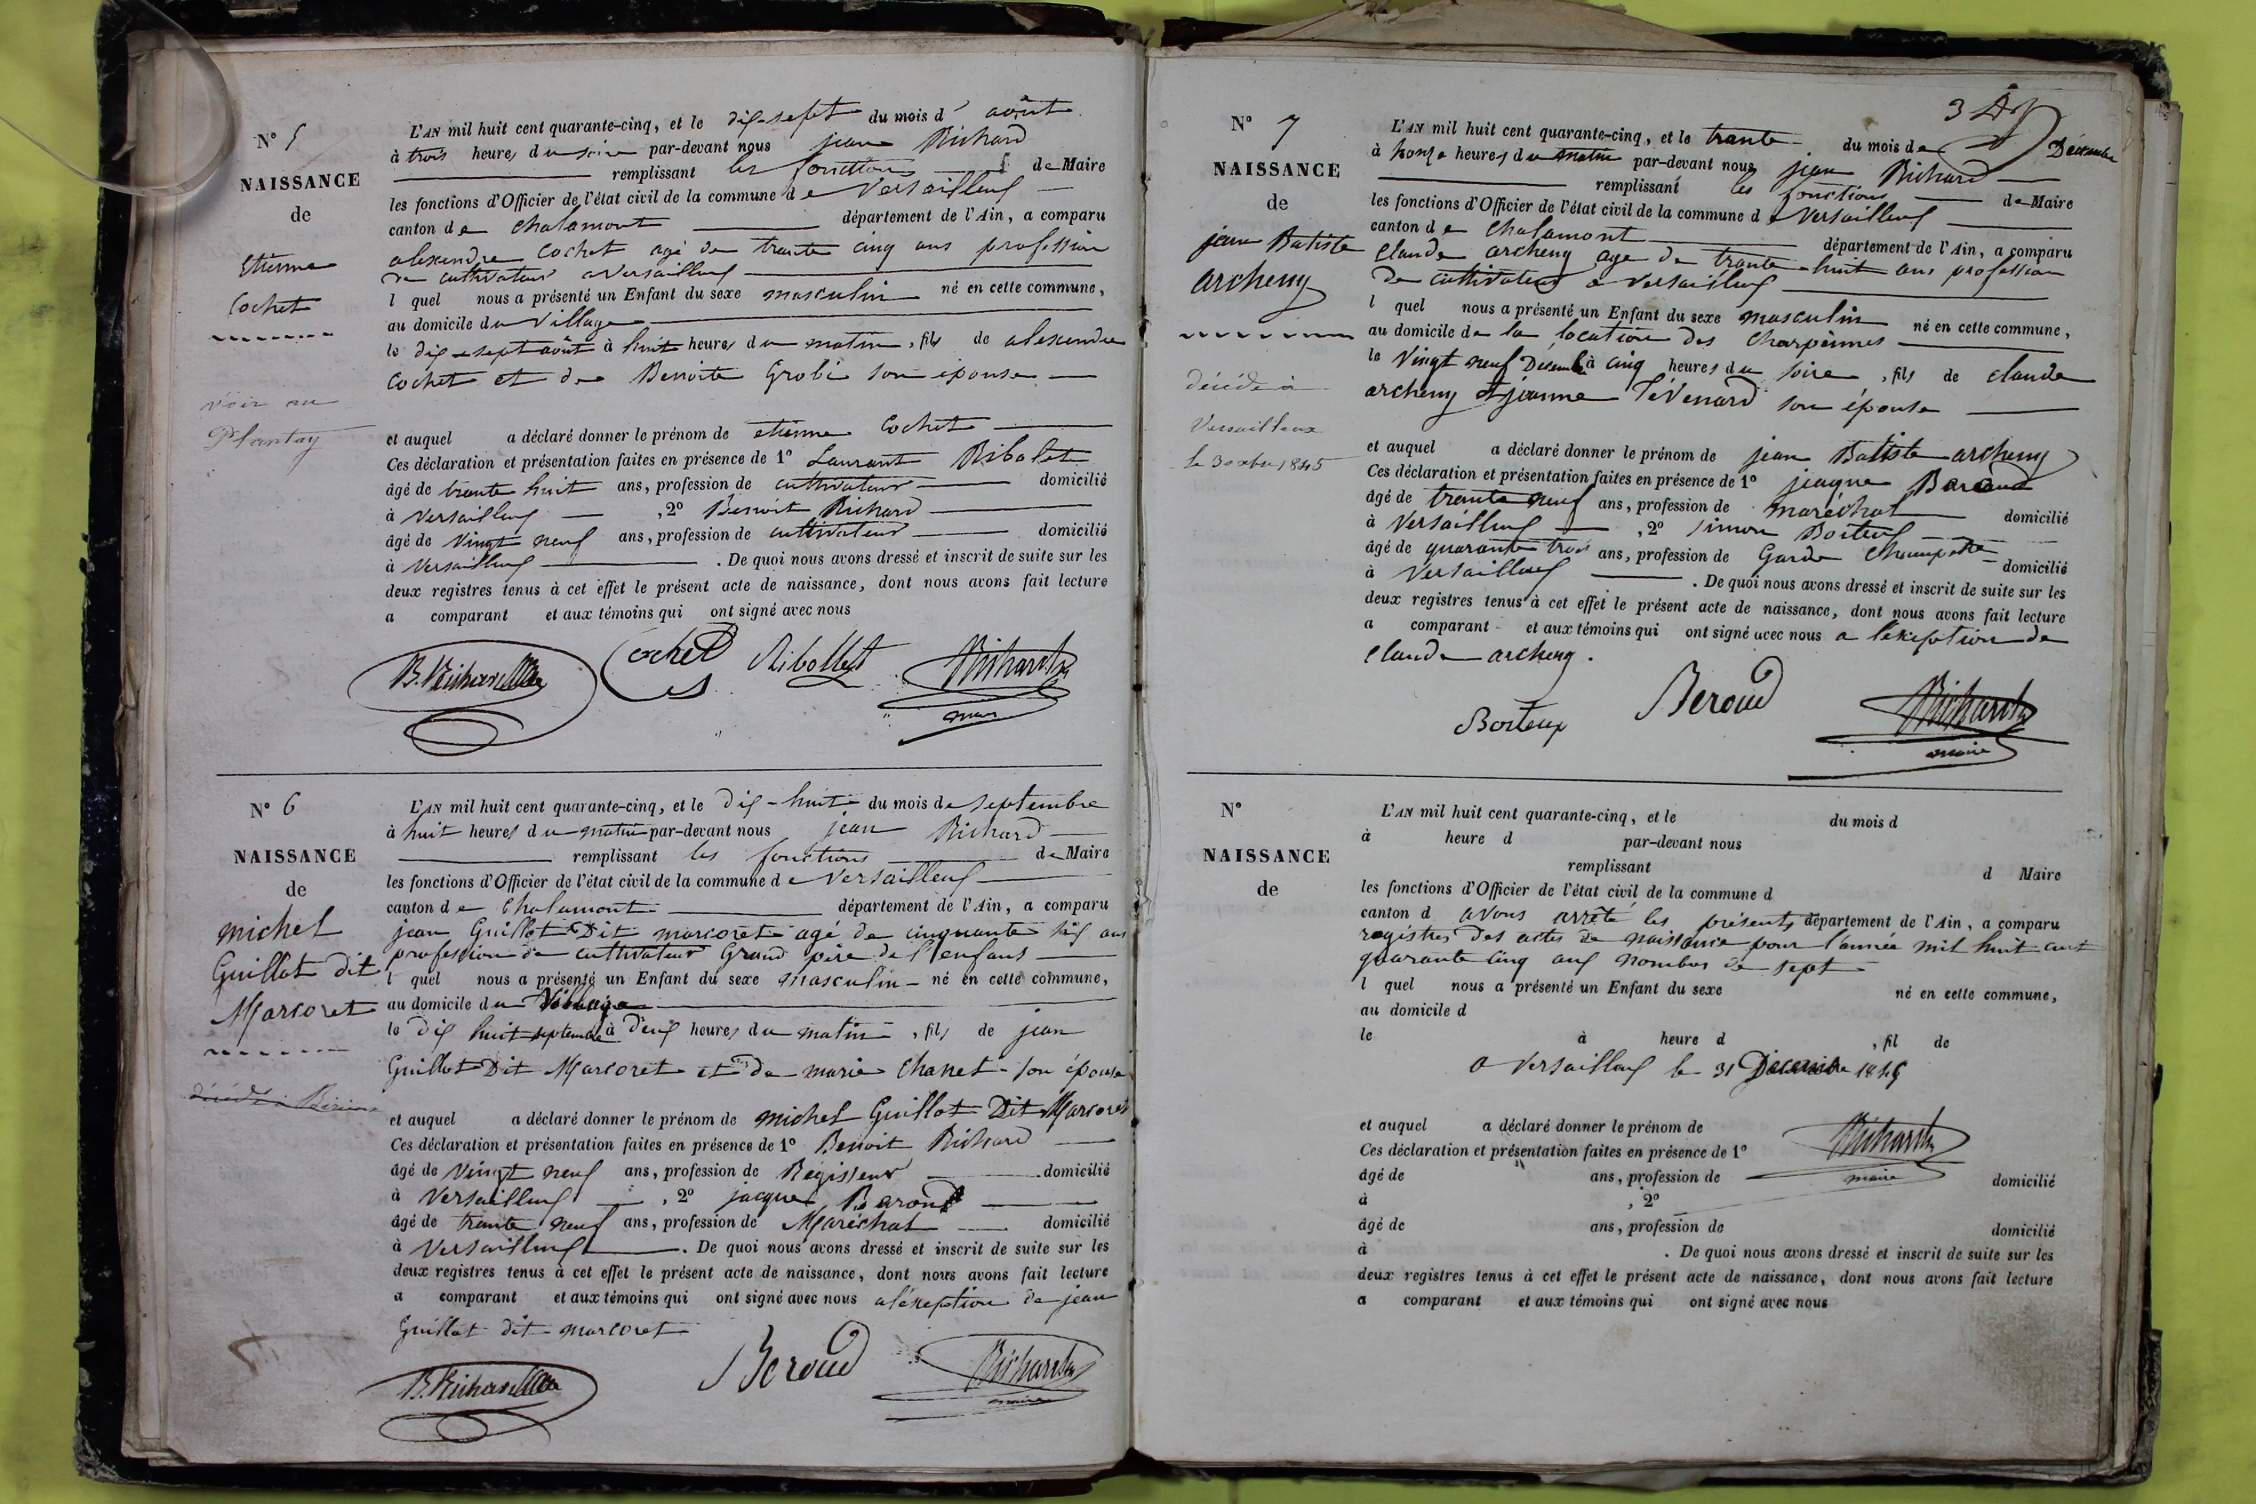 N° 5
NAISSANCE
de
Etienne
Cochet
voir au
Plantay
L'AN mil huit cent quarante-cinq, et le dix-sept du mois d' août
à trois heures du soire par-devant nous jean Richard
remplissant les fonctions de Maire
les fonctions d'Officier de l'état civil de la commune de Versailleux
canton de Chalamont département de l'Ain, a comparu
alexandre Cochet agé de trante cinq ans profession
de cultivateur a Versailleux
l quel nous a présenté un Enfant du sexe masculin né en cette commune,
au domicile du Village
le dix sept août à huit heures du matin, fils de alexandre
Cochet et de Benoite Grobi son épouse
et auquel a déclaré donner le prénom de etienne Cochet
Ces déclaration et présentation faites en présence de 1° Laurant Ribolet
âgé de trante huit ans, profession de cultivateur domicilié
à Versailleux , 2° Benoit Richard
âgé de vingt neuf ans, profession de cultivateur domicilié
à Versailleux . De quoi nous avons dressé et inscrit de suite sur les
deux registres tenus à cet effet le présent acte de naissance, dont nous avons fait lecture
a comparant et aux témoins qui ont signé avec nous
B. Richard Cochet Ribollet Richard
maire
N° 6
NAISSANCE
de
michel
Guillot dit
Marcoret
décédé à
L'AN mil huit cent quarante-cinq, et le dix-huit du mois de septembre
à huit heures du matin par-devant nous jean Richard
remplissant les fonctions de Maire
les fonctions d'Officier de l'état civil de la commune de Versailleux
canton de Chalamont département de l'Ain, a comparu
jean Guillot Dit marcoret agé de cinquante six ans
profession de cultivateur Grand père de l'enfans
l quel nous a présenté un Enfant du sexe masculin né en cette commune,
au domicile du Village
le dix huit septembre à deux heures du matin, fils de jean
Guillot Dit Marcoret et de marie Chanet son épouse
et auquel a déclaré donner le prénom de michel Guillot Dit Marcoret
Ces déclaration et présentation faites en présence de 1° Benoit Richard
âgé de vingt neuf ans, profession de Regisseur domicilié
à Versailleux , 2° jacque Baroud
âgé de trante neuf ans, profession de Maréchal domicilié
à Versailleux . De quoi nous avons dressé et inscrit de suite sur les
deux registres tenus à cet effet le présent acte de naissance, dont nous avons fait lecture
a comparant et aux témoins qui ont signé avec nous a l'exeption de jean
Guillot dit marcoret
B. Richard Beroud Richard
maire
N° 7
NAISSANCE
de
jean Batiste
archeny
décédé à
Versailleux
le 30 xbre 1845
L'AN mil huit cent quarante-cinq, et le trante du mois de Décembre
à honze heures du matin par-devant nous jean Richard
remplissant les fonctions de Maire
les fonctions d'Officier de l'état civil de la commune de Versailleux
canton de Chalamont département de l'Ain, a comparu
Claude archeny age de trante-huit ans profession
de cultivateur a Versailleux
l quel nous a présenté un Enfant du sexe masculin né en cette commune,
au domicile de la location des Charpennes
le Vingt neuf Décembre à cinq heures du soire, fils de claude
archeny et jeanne Tévenard son épouse
et auquel a déclaré donner le prénom de jean Batiste archeny
Ces déclaration et présentation faites en présence de 1° jeaque Baroud
âgé de trante neuf ans, profession de maréchal domicilié
à Versailleux , 2° Simon Boiteux
âgé de quarante trois ans, profession de Garde Champetre domicilié
à Versailleux . De quoi nous avons dressé et inscrit de suite sur les
deux registres tenus à cet effet le présent acte de naissance, dont nous avons fait lecture
a comparant et aux témoins qui ont signé avec nous a l'exeption de
Claude archeny.
Boiteux Beroud Richard
maire
N°
NAISSANCE
de
L'AN mil huit cent quarante-cinq, et le du mois d
à heure d par-devant nous
remplissant d Maire
les fonctions d'Officier de l'état civil de la commune d
canton d avons arrêté les présents département de l'Ain, a comparu
registres des actes de naissance pour l'année mil huit cent
quarante cinq aux nombres de sept
l quel nous a présenté un Enfant du sexe né en cette commune,
au domicile d
le à heure d , fil de
a Versailleux le 31 Décembre 1845
et auquel a déclaré donner le prénom de
Ces déclaration et présentation faites en présence de 1° Richard
âgé de ans, profession de maire domicilié
à , 2°
âgé de ans, profession de domicilié
à . De quoi nous avons dressé et inscrit de suite sur les
deux registres tenus à cet effet le présent acte de naissance, dont nous avons fait lecture
a comparant et aux témoins qui ont signé avec nous